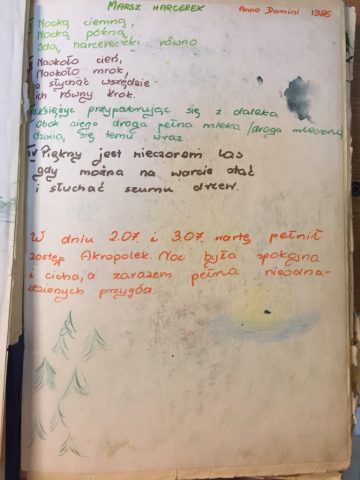 MARSZ HARCEREK Anno Domini 1985
I Nocką ciemną,
Nocką późną
Idą harcereczki równo
II Naokoło cień,
Naokoło mrok,
a słychać wszędzie
ich równy krok.
III Księżyc przypatrując się z daleka
obok niego droga pełna mleka /droga mleczna/
dziwią się temu wraz.
IV Piękny jest wieczorem las
gdy można na warcie stać
i słuchać szumu drzew.
W dniu 2.07. i 3.07. wartę pełnił
zastęp Akropolek. Noc była spokojna
i cicha, a zarazem pełna nieodna-
lezionych przygód